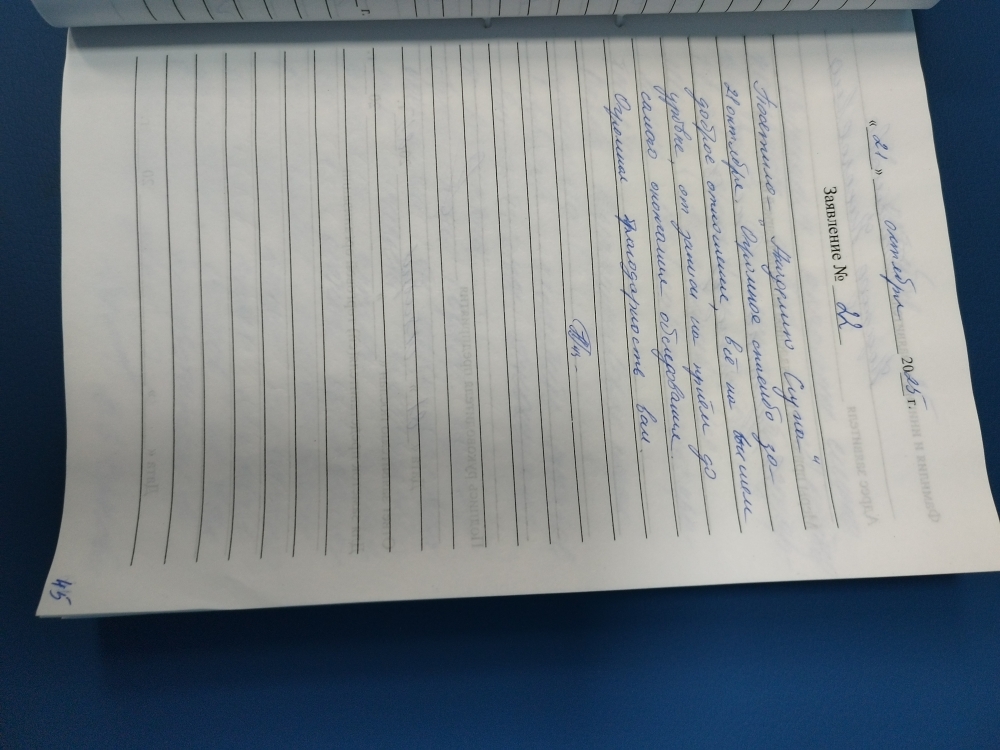 « 21 » октября 2025 г.
Заявление № 22
Посетила " Слуха "
21 октября. Огромное спасибо за
доброе отношение, всё на высшем
уровне, от записи на приём до
самого окончания обследования.
Огромная благодарность вам.
45